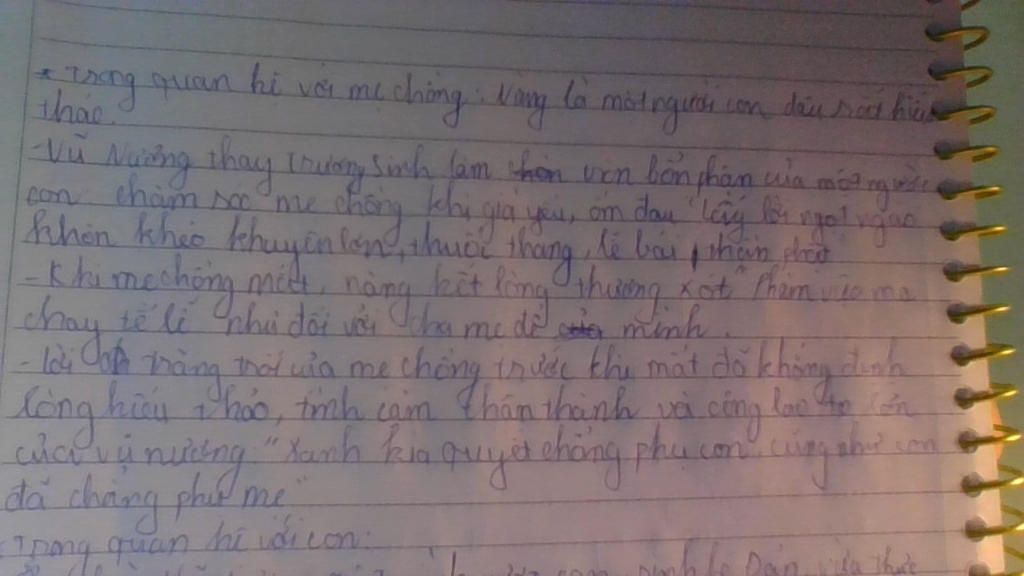 * Trong quan hệ với mẹ chồng: Nàng là một người con dâu rất hiếu
thảo.
- Vũ Nương thay Trương Sinh làm tròn bổn phận của một người
con chăm sóc mẹ chồng khi già yếu, ốm đau "lấy lời ngọt ngào
khôn khéo khuyên lơn, thuốc thang, lễ bái thần phật
- Khi mẹ chồng mất, nàng hết lòng thương xót, ma
chay tế lễ như đối với cha mẹ đẻ mình.
- Lời trăng trối của mẹ chồng trước khi mất đã khẳng định
lòng hiếu thảo, tình cảm chân thành và công lao to lớn
của vũ nương "Xanh kia quyết chẳng phụ con, cũng như con
đã chẳng phụ mẹ"
Trong quan hệ với con: